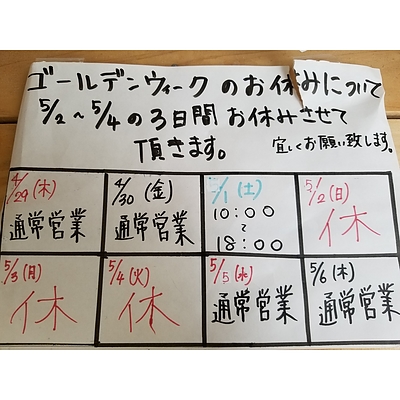 ゴールデンウィークのお休みについて
5/2～5/4の3日間お休みさせて
頂きます。 宜しくお願い致します。
4/29(木) 4/30(金) 5/1(土) 5/2(日)
通常営業 通常営業 10:00～18:00 休
5/3(月) 5/4(火) 5/5(水) 5/6(木)
休 休 通常営業 通常営業